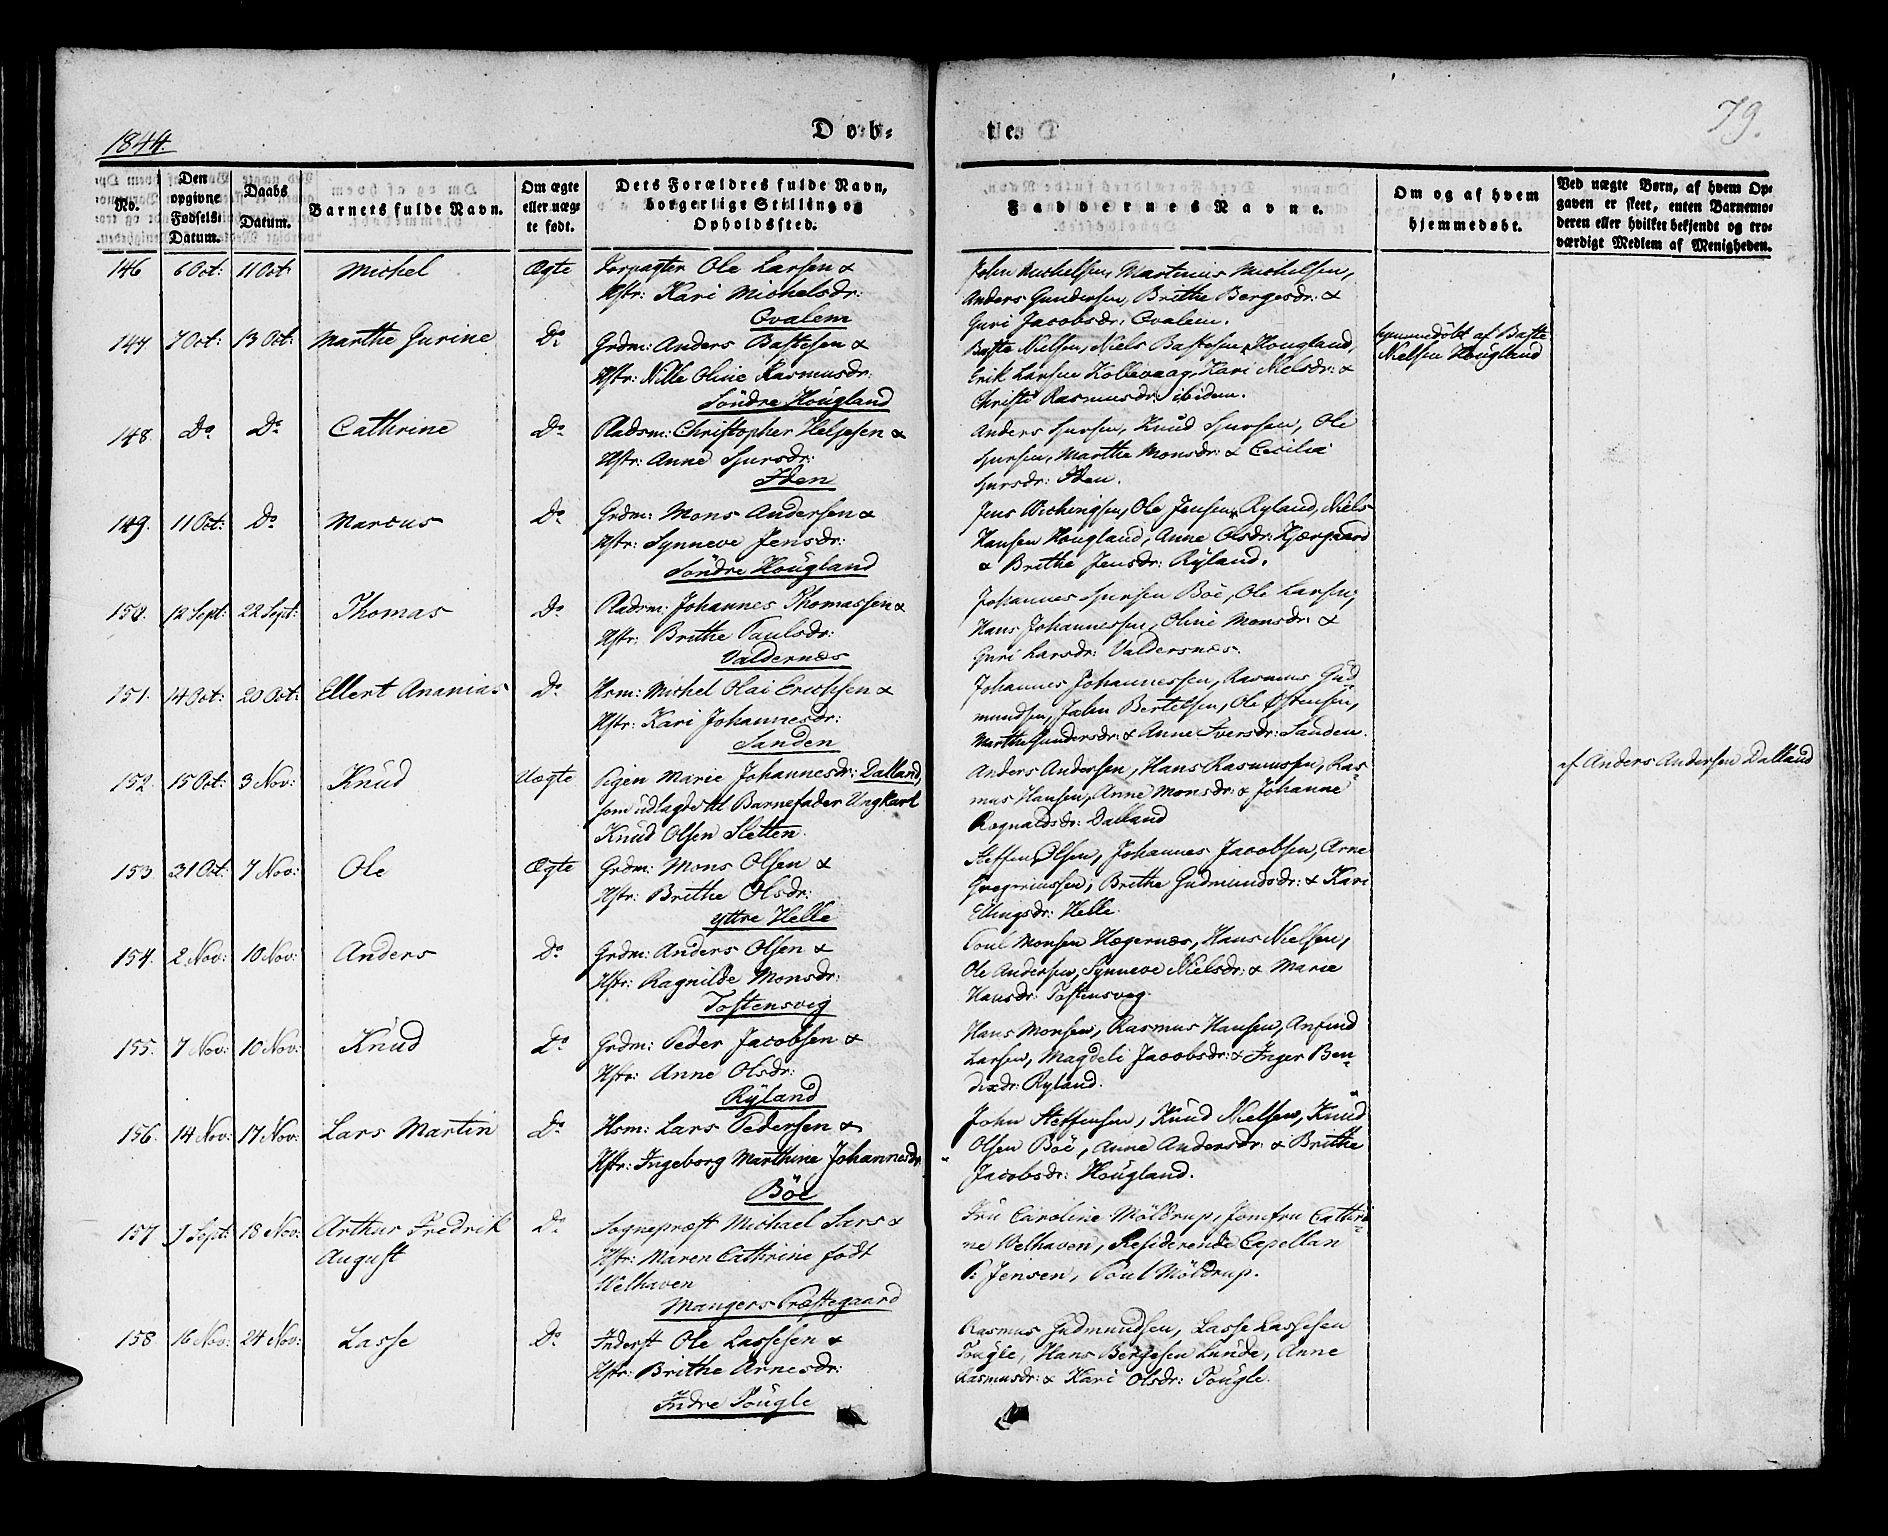 1844.
Døb-
te.
79.
No.
Den opgivne Fødsels-Datum.
Daabs Datum.
Barnets fulde Navn.
Om ægte eller uægte født.
Dets Forældres fulde Navn, borgerlige Stilling og Opholdssted.
Faddernes Navne.
Om og af hvem hjemmedøbt.
Ved uægte Børn, af hvem Opgaven er skeet, enten Barnemoderen eller hvilket bekjendt og troværdigt Medlem af Menigheden.
146 6 Oct: 11 Oct: Michel Ægte Forpagter Ole Larsen &
Hstr: Kari Michelsdr:
Qvalem
John Michelsen, Martinus Michelsen,
Anders Gundersen, Brithe Bergesdr: &
Guri Jacobsdr: Qvalem.
147 7 Oct: 13 Oct: Marthe Gurine Do Grdm: Anders Bastesen &
Hstr: Nille Oline Rasmusdr:
Söndre Hougland
Baste Nielsen, Niels Bastesen Hougland,
Erik Larsen Kolbevaag, Kari Nielsdr: &
Christi Rasmusdr: ibidem.
hjemmedöbt af Baste
Nielsen Hougland
148. Do Do Cathrine Do Pladsm: Christopher Heljesen &
Hstr: Anne Sjursdr:
Iden
Anders Sjursen, Knud Sjursen, Ole
Sjursen, Marthe Monsdr: & Cecilia
Sjursdr: Iden.
149. 11 Oct: Do Marcus Do Grdm: Mons Andersen &
Hstr: Synneve Jensdr:
Söndre Hougland
Jens Wichingsen, Ole Jensen Ryland, Niels
Hansen Hougland, Anne Olsdr: Kjærgaard
& Brithe Jensdr: Ryland.
150. 12 Sept: 22 Sept: Thomas Do Pladsm: Johannes Thomassen &
Hstr: Brithe Paulsdr:
Valdernæs
Johannes Sjursen Böe, Ole Larsen,
Hans Johannessen, Oline Monsdr: &
Guri Larsdr: Valdersnæs.
151. 14 Oct: 20 Oct: Ellert Ananias Do Hsm: Michel Olai Erichsen &
Hstr: Kari Johannesdr:
Sanden
Johannes Johannessen, Rasmus Gud-
mundsen, John Bertelsen, Ole Østensen,
Marthe Gundersdr: & Anne Iversdr: Sanden.
152. 15 Oct: 3 Nov: Knud Uægte Pigen Marie Johannesdr: Dalland,
som udlagde til Barnefader Ungkarl
Knud Olsen Sletten.
Anders Andersen, Hans Rasmussen, Ras-
mus Hansen, Anne Monsdr: & Johanne
Rognaldsdr: Dalland
af Anders Andersen Dalland
153. 31 Oct: 7 Nov: Ole Ægte Grdm: Mons Olsen &
Hstr: Brithe Olsdr:
yttre Helle
Steffen Olsen, Johannes Jacobsen, Arne
Gregoriussen, Brithe Gudmundsdr: & Kari
Ellingsdr: Helle.
154. 2 Nov: 10 Nov: Anders Do Grdm: Anders Olsen &
Hstr: Ragnilde Monsdr:
Tostensvig
Poul Monsen Hægernæs, Hans Nielsen,
Ole Andersen, Synneve Nielsdr: & Marie
Hansdr: Tostensvig.
155. 7 Nov: 10 Nov: Knud Do Grdm: Peder Jacobsen &
Hstr: Anne Olsdr:
Ryland
Hans Monsen, Rasmus Hansen, Anfind
Larsen, Magdeli Jacobsdr: & Inger Ben-
dixdr: Ryland.
156. 14 Nov: 17 Nov: Lars Martin Do Hsm: Lars Pedersen &
Hstr: Ingeborg Marthine Johannesdr:
Böe
John Steffensen, Knud Nielsen, Knud
Olsen Böe, Anne Andersdr: & Brithe
Jacobsdr: Hougland.
157 Sept: 18 Nov: Arthur Fredrik
August
Do Sognepræst Michael Sars &
Hstr: Maren Cathrine født
Welhaven
Mangers Præstegaard
Fru Caroline Möldrup, Jomfru Cathri-
ne Welhaven, Residerende Capellan
P: Jensen, Poul Möldrup.
158 16 Nov: 24 Nov: Lasse Do Inderst Ole Lassesen &
Hstr: Brithe Arnesdr:
Indre Tougle
Rasmus Gudmundsen, Lasse Lassesen
Tougle, Hans Bergesen Lunde, Anne
Rasmusdr: & Kari Olsdr: Tougle.